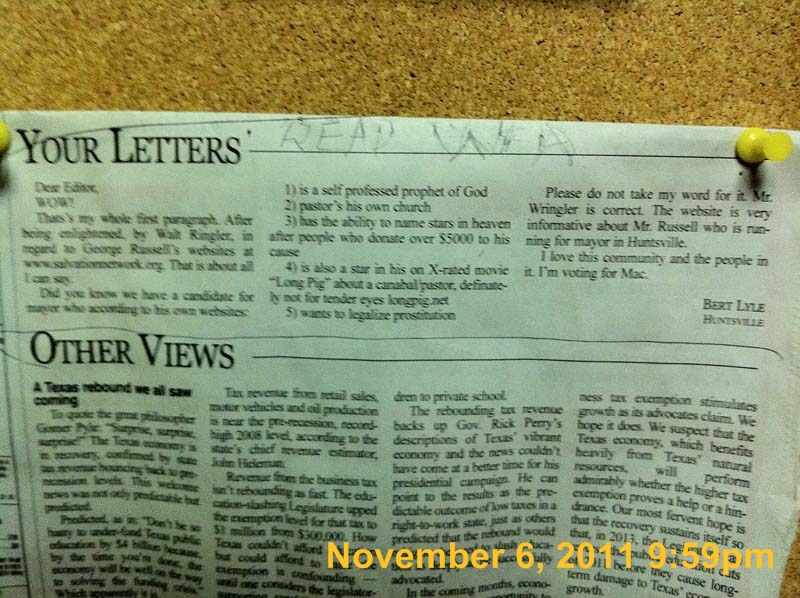 READ
YOUR LETTERS
Dear Editor,
WOW!
Thats's my whole first paragraph. After
being enlightened, by Walt Ringler, in
regard to George Russell's websites at
www.salvationnetwork.org. That is about all
I can say.
Did you know we have a candidate for
mayor who according to his own websites:
1) is a self professed prophet of God
2) pastor's his own church
3) has the ability to name stars in heaven
after people who donate over $5000 to his
cause
4) is also a star in his on X-rated movie
"Long Pig" about a canabal pastor, definate-
ly not for tender eyes longpig.net
5) wants to legalize prostitution
Please do not take my word for it. Mr.
Wringler is correct. The website is very
informative about Mr. Russell who is run-
ning for mayor in Huntsville.
I love this community and the people in
it. I'm voting for Mac.
BERT LYLE
HUNTSVILLE
OTHER VIEWS
A Texas rebound we all saw
coming
To quote the great philosopher
Gomer Pyle: "Surprise, surprise,
surprise!" The Texas economy is
in recovery, confirmed by state
tax revenue bouncing back to pre-
recession levels. This welcome
news was not only predictable but
predicted.
Predicted, as in: "Don't be so
hasty to under-fund Texas public
education by $4 billion because,
by the time you're done, the
economy will be well on the way
to solving the funding crisis."
Which apparently it is.
Tax revenue from retail sales,
motor vehicles and oil production
is near the pre-recession, record-
high 2008 level, according to the
state's chief revenue estimator,
John Heleman.
Revenue from the business tax
isn't rebounding as fast. The edu-
cation-slashing Legislature upped
the exemption level for that tax to
$1 million from $300,000. How
Texas couldn't afford
but could afford to
exemption is confounding —
until one considers the legislator-
dren to private school.
The rebounding tax revenue
backs up Gov. Rick Perry's
descriptions of Texas' vibrant
economy and the news couldn't
have come at a better time for his
presidential campaign. He can
point to the results as the pre-
dictable outcome of low taxes in a
right-to-work state, just as others
predicted that the rebound would
advocated.
In the coming months, econo-
ness tax exemption stimulates
growth as its advocates claim. We
hope it does. We suspect that the
Texas economy, which benefits
heavily from Texas' natural
resources, will perform
admirably whether the higher tax
exemption proves a help or a hin-
drance. Our most fervent hope is
that the recovery sustains itself so
that, in 2013, the
cuts
before they cause long-
term damage to Texas' eco
growth.
November 6, 2011 9:59pm